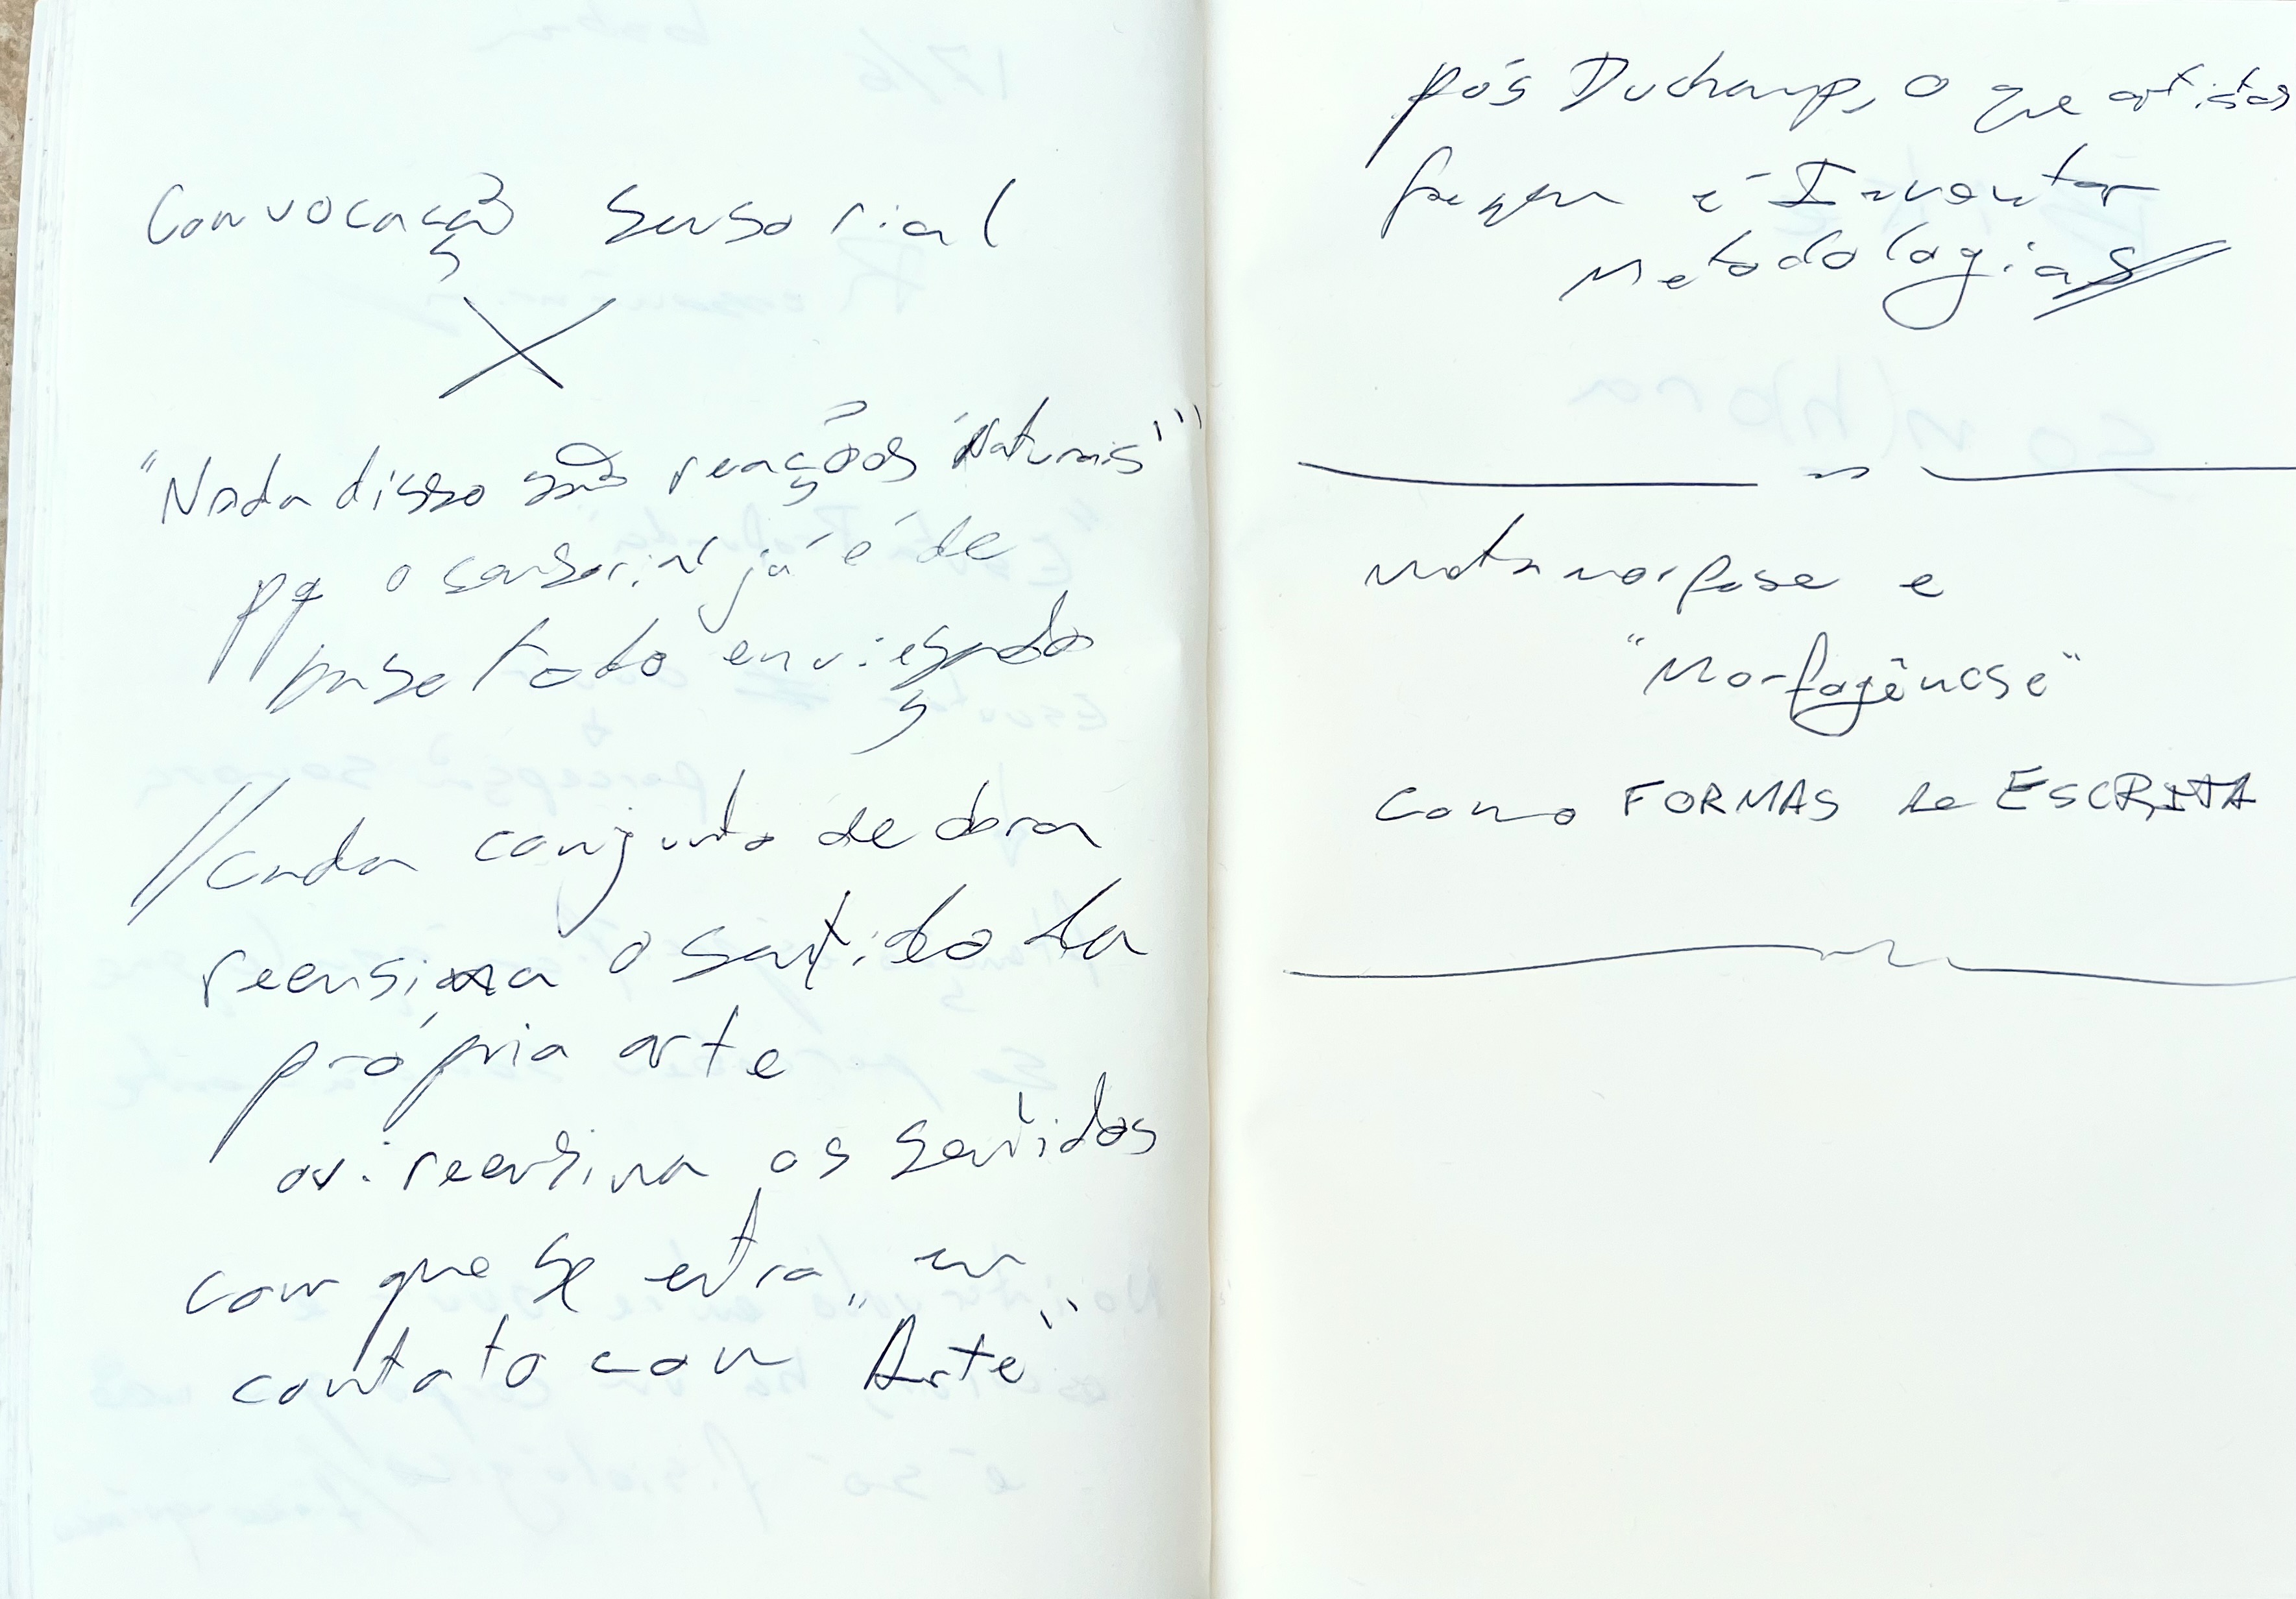 Convocação sensorial
X
"Nada disso são reações 'Naturais'"
pq o sensorial já é de
base todo enviesado
// cada conjunto de obra
reensina o sentido da
própria arte
ou: reensina os sentidos
com que se entra em
contato com "Arte"
pós Duchamp, o que artistas
fazem é Inventar
Metodologias
metamorfose e
"Morfogênese"
como FORMAS de ESCRITA